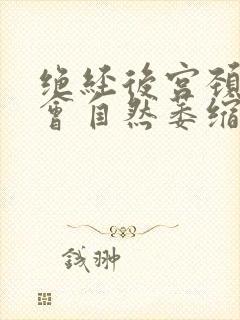 绝经后宫颈
会自然萎缩
钱翀